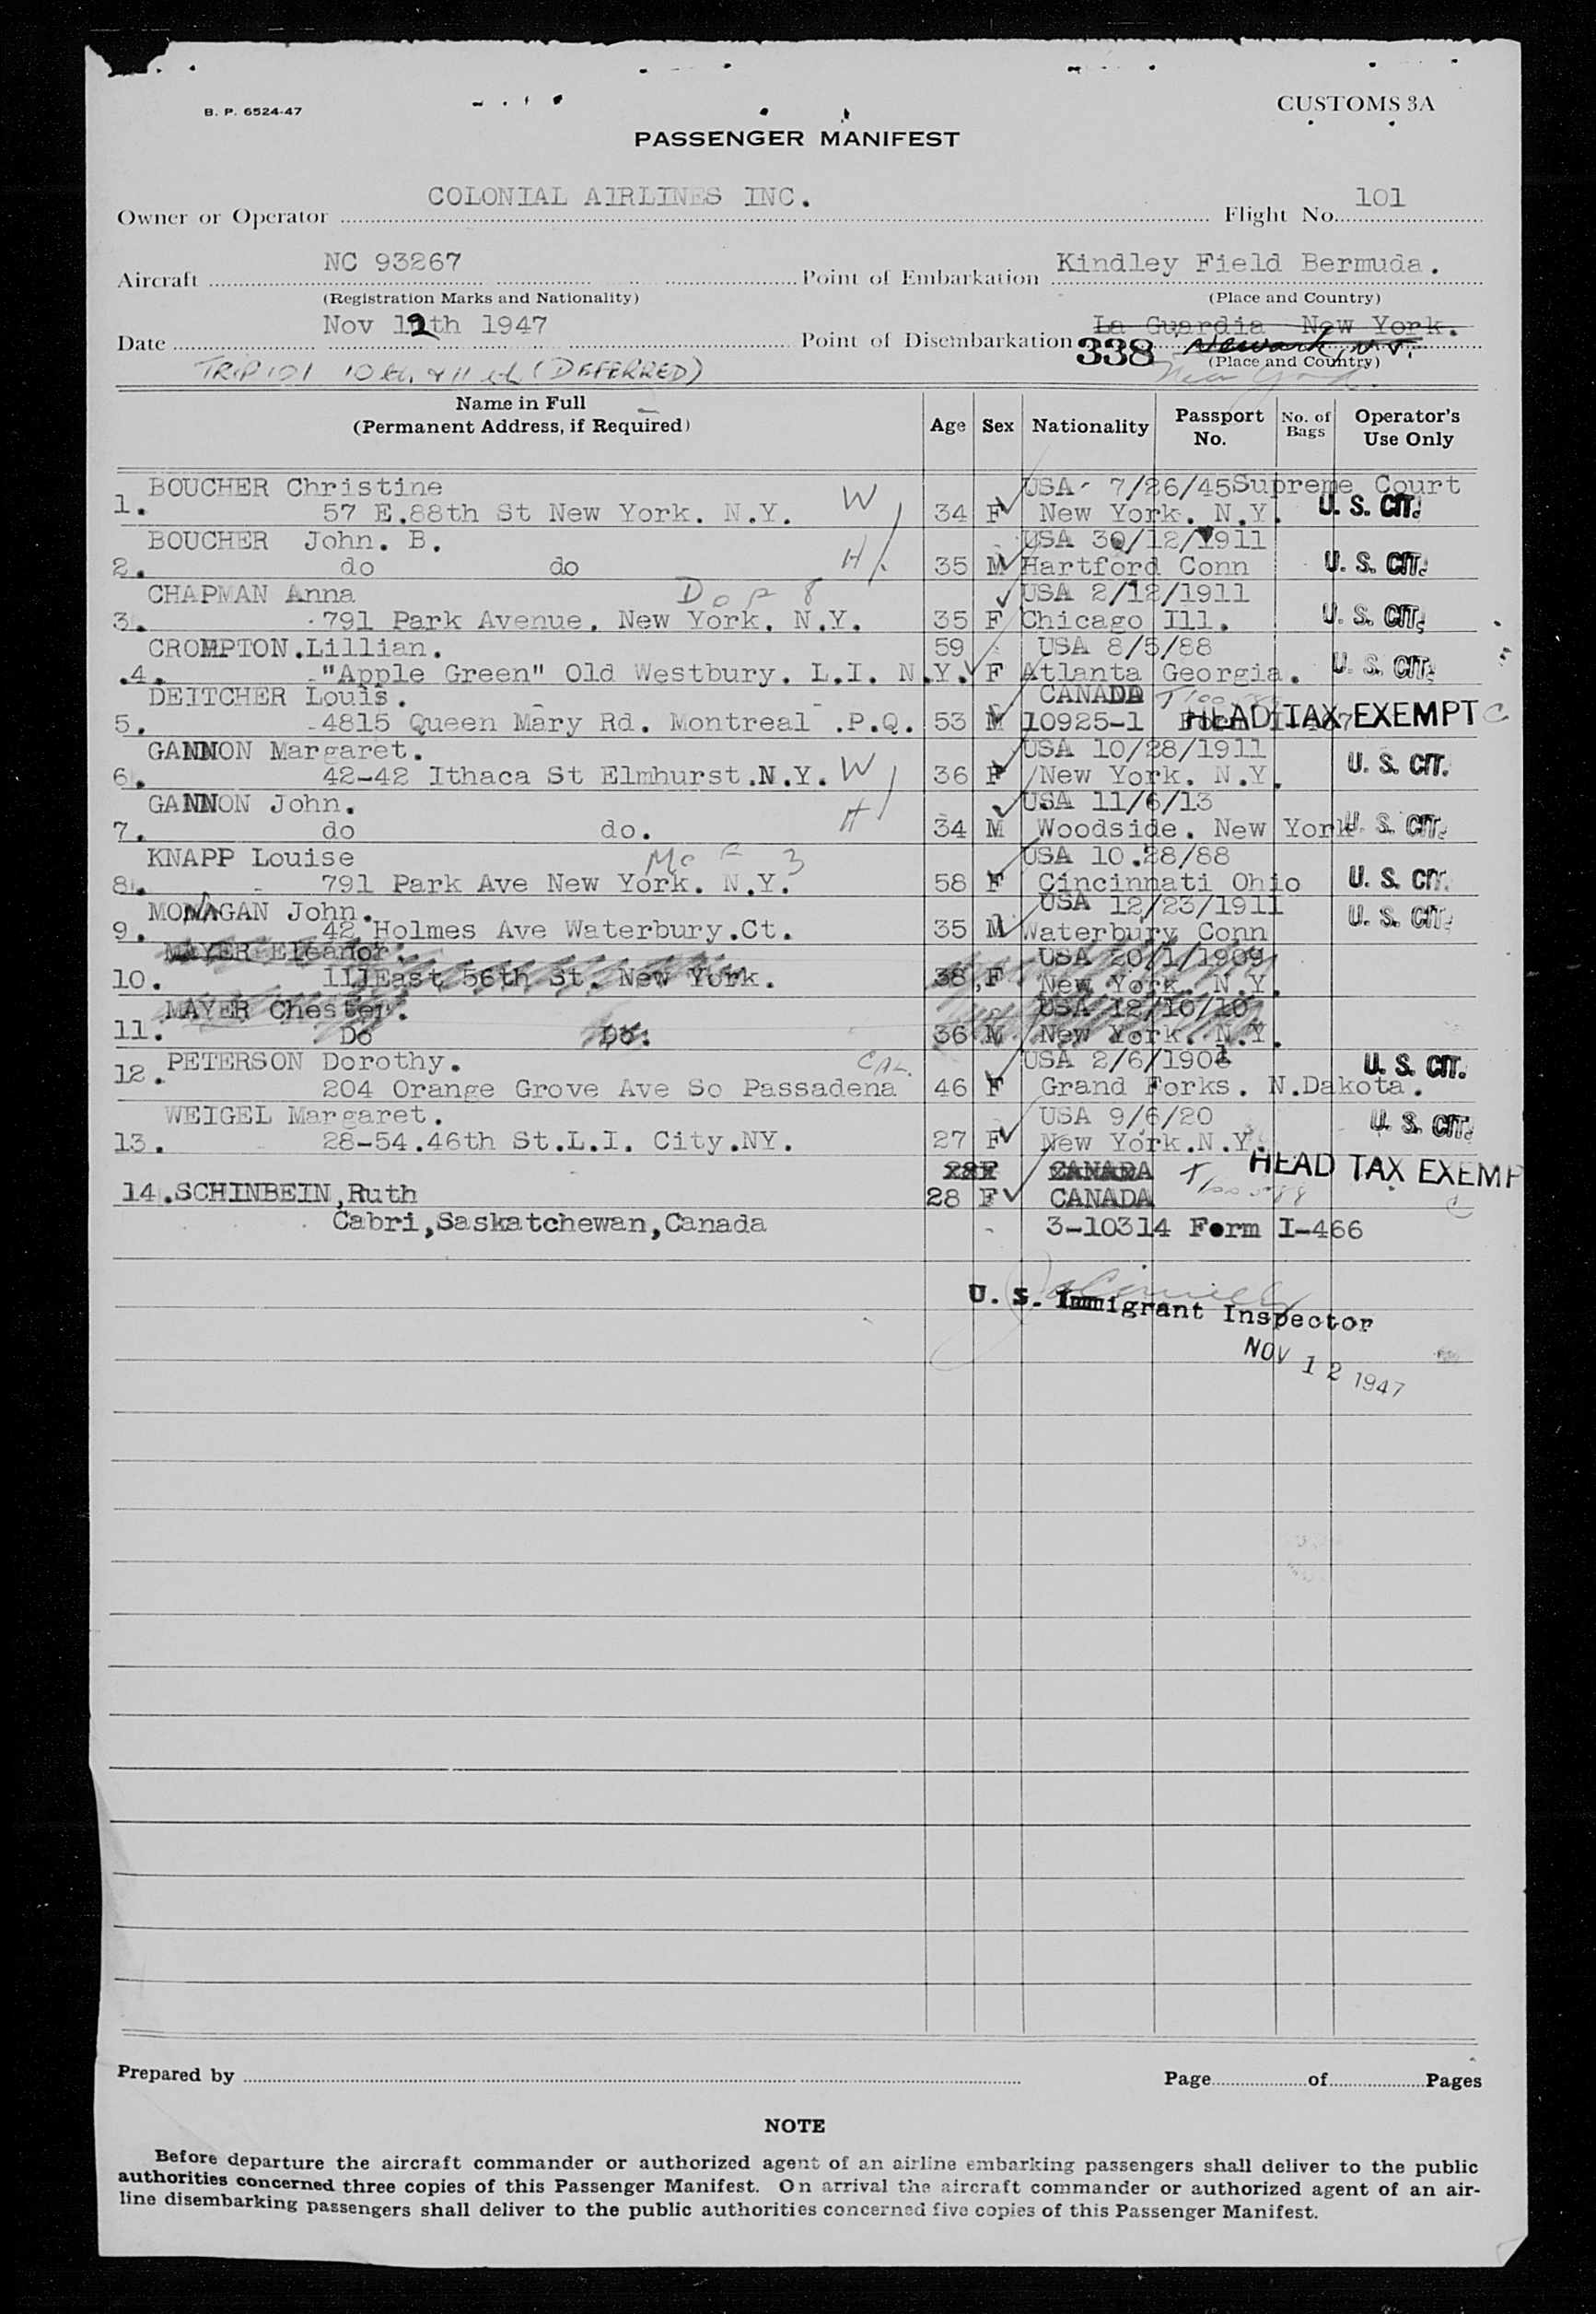 B. P. 6524-47
CUSTOMS 3A
PASSENGER MANIFEST
Owner or Operator COLONIAL AIRLINES INC. Flight No. 101
Aircraft NC 93267 Point of Embarkation Kindley Field Bermuda.
(Registration Marks and Nationality) (Place and Country)
Date Nov 12th 1947 Point of Disembarkation La Guardia New York.
338 Newark, N.J.
(Place and Country)
TRIP 101 10th & 11th (DEFERRED) New York.
Name in Full
(Permanent Address, if Required)
Age Sex Nationality Passport No. No. of Bags Operator's Use Only
BOUCHER Christine USA 7/26/45 Supreme Court
1. 57 E.88th St New York. N.Y. W 34 F New York. N.Y. U. S. CIT.
BOUCHER John. B. USA 30/12/1911
2. do do H 35 M Hartford Conn U. S. CIT.
CHAPMAN Anna USA 2/12/1911
3. 791 Park Avenue. New York. N.Y. 35 F Chicago Ill. U. S. CIT.
CROMPTON.Lillian. 59 USA 8/5/88
4. "Apple Green" Old Westbury. L.I. N.Y. F Atlanta Georgia. U. S. CIT.
DEITCHER Louis. CANADA
5. 4815 Queen Mary Rd. Montreal .P.Q. 53 M 10925-1 HEAD TAX EXEMPT
GANNON Margaret. USA 10/28/1911
6. 42-42 Ithaca St Elmhurst.N.Y. W 36 F New York. N.Y. U. S. CIT.
GANNON John. USA 11/6/13
7. do do. H 34 M Woodside. New York U. S. CIT.
KNAPP Louise USA 10.28/88
8. 791 Park Ave New York. N.Y. 58 F Cincinnati Ohio U. S. CIT.
MONAGAN John. USA 12/23/1911
9. 42 Holmes Ave Waterbury.Ct. 35 M Waterbury Conn U. S. CIT.
MAYER Eleanor. USA 20/1/1909
10. 111East 56th St. New York. 38 F New York. N.Y.
MAYER Chester. USA 12/10/10
11. Do Do. 36 M New York. N.Y.
PETERSON Dorothy. CAL. USA 2/6/1901 U. S. CIT.
12. 204 Orange Grove Ave So Passadena 46 F Grand Forks. N.Dakota.
WEIGEL Margaret. USA 9/6/20 U. S. CIT.
13. 28-54.46th St.L.I. City.NY. 27 F New York.N.Y.
28F CANADA HEAD TAX EXEMP
14.SCHINBEIN,Ruth 28 F CANADA
Cabri,Saskatchewan,Canada 3-10314 Form I-466
U. S. Immigrant Inspector
NOV 12 1947
Prepared by Page of Pages
NOTE
Before departure the aircraft commander or authorized agent of an airline embarking passengers shall deliver to the public
authorities concerned three copies of this Passenger Manifest. On arrival the aircraft commander or authorized agent of an air-
line disembarking passengers shall deliver to the public authorities concerned five copies of this Passenger Manifest.